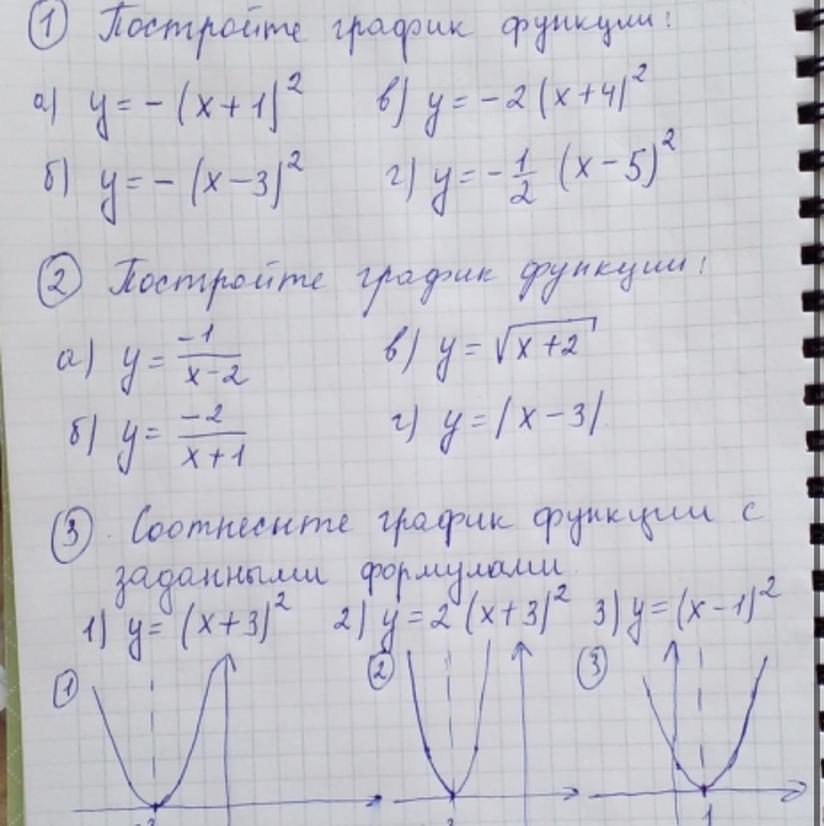 ① Постройте график функции:
а) y = -(x+1)² в) y = -2(x+4)²
б) y = -(x-3)² г) y = -1/2 (x-5)²
② Постройте график функции:
а) y = -1/(x-2) в) y = √(x+2)
б) y = -2/(x+1) г) y = |x-3|
③ Соотнесите график функции с
заданными формулами
1) y = (x+3)² 2) y = 2(x+3)² 3) y = (x-1)²
① ② ③
1